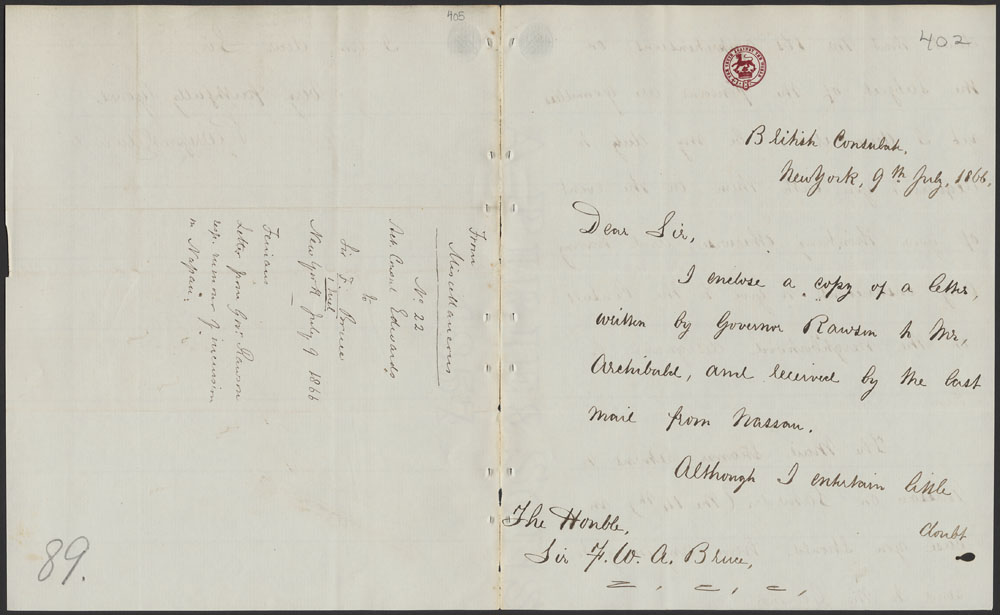 405
From
Miscellaneous
No. 22
Act. Consl Edwards
to
Sir F. Bruce
1 incl
New York July 9 1866
Fenians
Letter from Govr Rawson
resp. rumour of invasion
n Nassau.
89.
402
British Consulate,
New York, 9th July, 1866,
Dear Sir,
I enclose a copy of a letter,
written by Governor Rawson to Mr,
Archibald, and received by the last
mail from Nassau.
Although I entertain little
doubt
The Honble,
Sir F. W. A. Bruce,